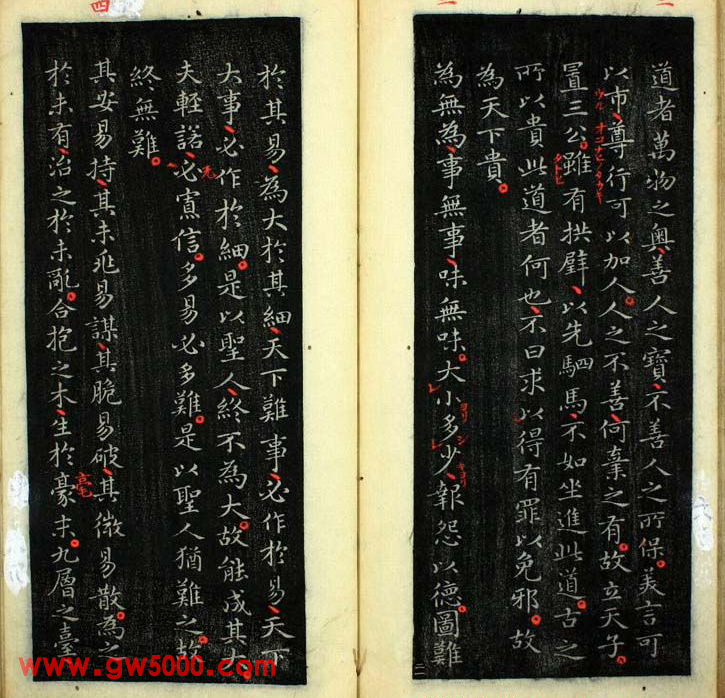 道者萬物之奥善人之寶不善人之所保美言可
以市尊行可以加人人之不善何棄之有故立天子
置三公雖有拱璧以先駟馬不如坐進此道古之
所以貴此道者何也不曰求以得有罪以免邪故
為天下貴
為無為事無事味無味大小多少報怨以德圖難
於其易為大於其細天下難事必作於易天下
大事必作於細是以聖人終不為大故能成其大
夫輕諾必寡信多易必多難是以聖人猶難之故
終無難
其安易持其未兆易謀其脆易破其微易散為之
於未有治之於未亂合抱之木生於豪末九層之臺
ウル
オコナヒノタカキ
タトヒ
ヨリ
シ
キヨリ
毫
四
www.gw5000.com